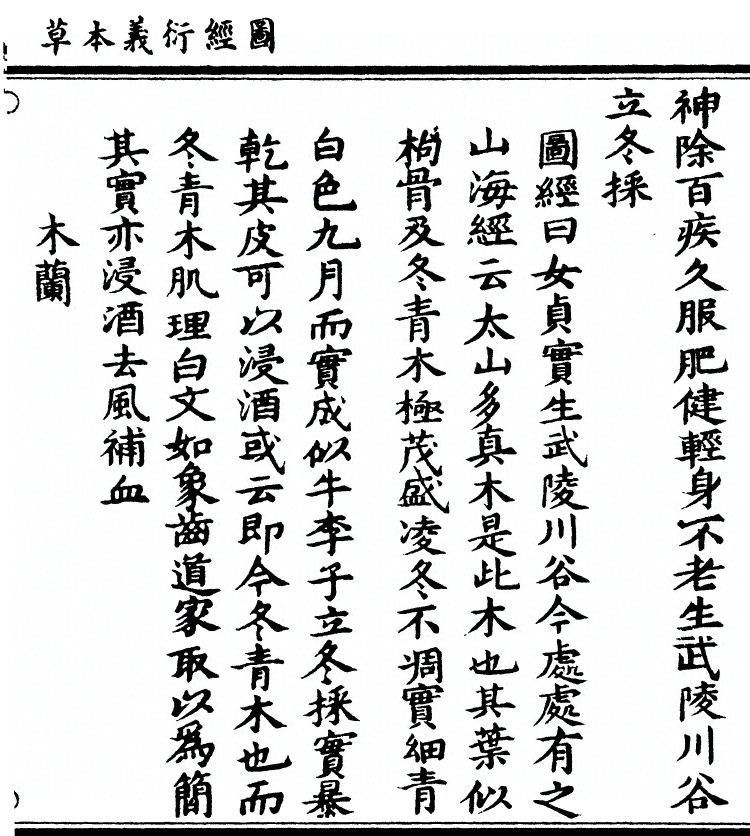 圖經衍義本草
神除百疾久服肥健輕身不老生武陵川谷
立冬採
圖經曰女貞實生武陵川谷今處處有之
山海經云太山多真木是此木也其葉似
枸骨及冬青木極茂盛凌冬不凋實細青
白色九月而實成似牛李子立冬採實暴
乾其皮可以浸酒或云即今冬青木也而
冬青木肌理白文如象齒道家取以為簡
其實亦浸酒去風補血
木蘭